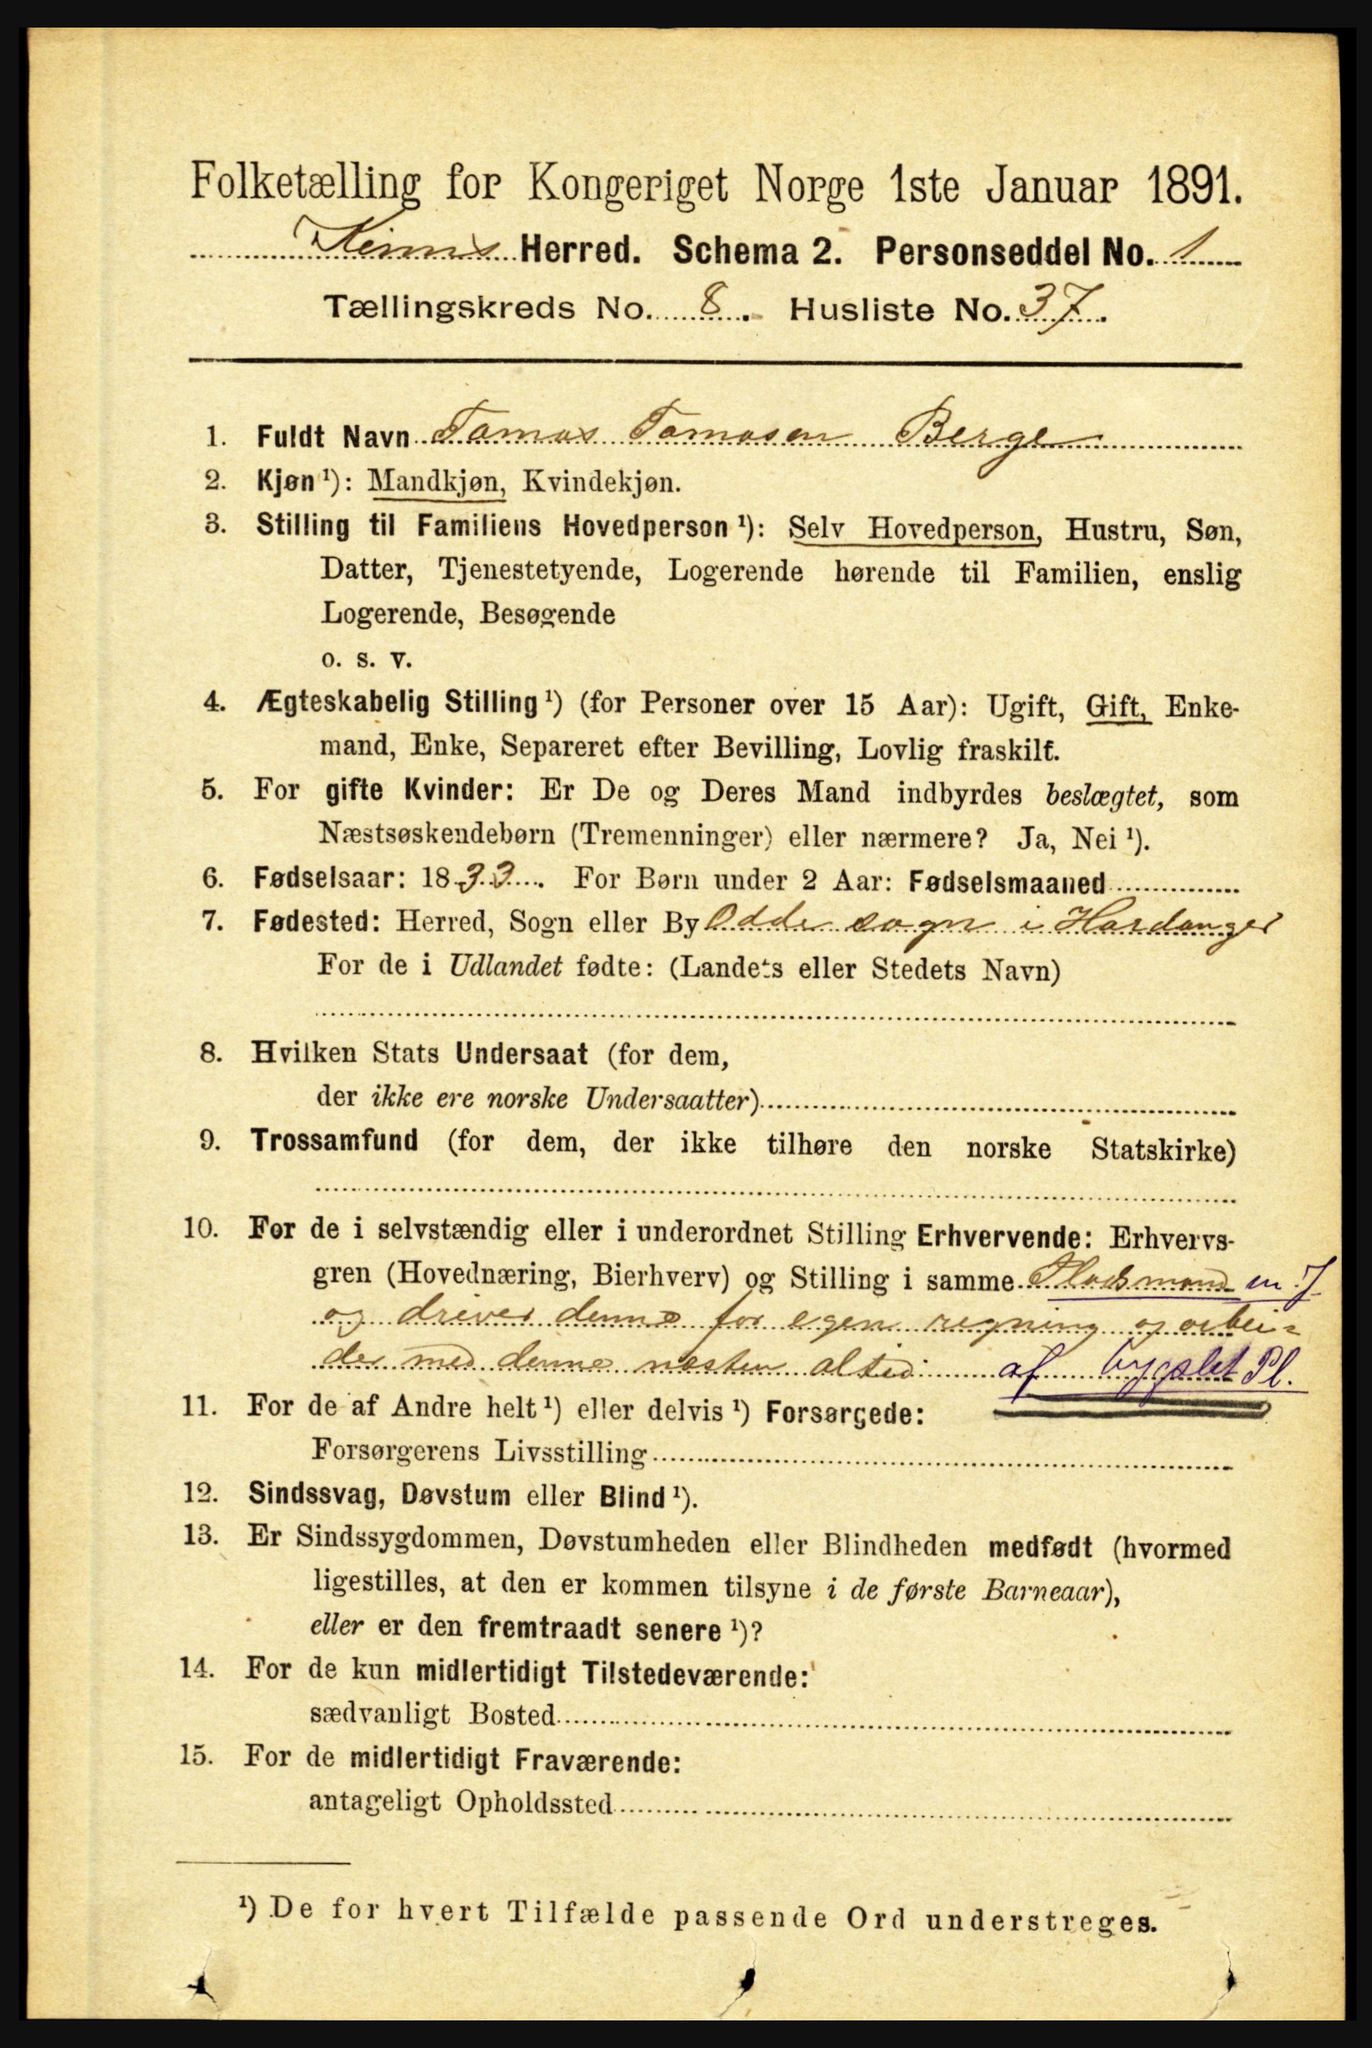 Folketælling for Kongeriget Norge 1ste Januar 1891.
Kinns Herred. Schema 2. Personseddel No. 1
Tællingskreds No. 8. Husliste No. 37.
1. Fuldt Navn Tomas Tomasen Berge
2. Kjøn ¹): Mandkjøn, Kvindekjøn.
3. Stilling til Familiens Hovedperson ¹): Selv Hovedperson, Hustru, Søn,
Datter, Tjenestetyende, Logerende hørende til Familien, enslig
Logerende, Besøgende
o. s. v.
4. Ægteskabelig Stilling ¹) (for Personer over 15 Aar): Ugift, Gift, Enke-
mand, Enke, Separeret efter Bevilling, Lovlig fraskilt.
5. For gifte Kvinder: Er De og Deres Mand indbyrdes beslægtet, som
Næstsøskendebørn (Tremenninger) eller nærmere? Ja, Nei ¹).
6. Fødselsaar: 1833. For Børn under 2 Aar: Fødselsmaaned
7. Fødested: Herred, Sogn eller By Odde sogn i Hardanger
For de i Udlandet fødte: (Landets eller Stedets Navn)
8. Hvilken Stats Undersaat (for dem,
der ikke ere norske Undersaatter)
9. Trossamfund (for dem, der ikke tilhøre den norske Statskirke)
10. For de i selvstændig eller i underordnet Stilling Erhvervende: Erhvervs-
gren (Hovednæring, Bierhverv) og Stilling i samme Pladsmand m J
og driver denne for egen regning og arbei-
der med denne næsten altid af bygslet Pl.
11. For de af Andre helt ¹) eller delvis ¹) Forsørgede:
Forsørgerens Livsstilling
12. Sindssvag, Døvstum eller Blind ¹).
13. Er Sindssygdommen, Døvstumheden eller Blindheden medfødt (hvormed
ligestilles, at den er kommen tilsyne i de første Barneaar),
eller er den fremtraadt senere ¹)?
14. For de kun midlertidigt Tilstedeværende:
sædvanligt Bosted
15. For de midlertidigt Fraværende:
antageligt Opholdssted
¹) De for hvert Tilfælde passende Ord understreges.